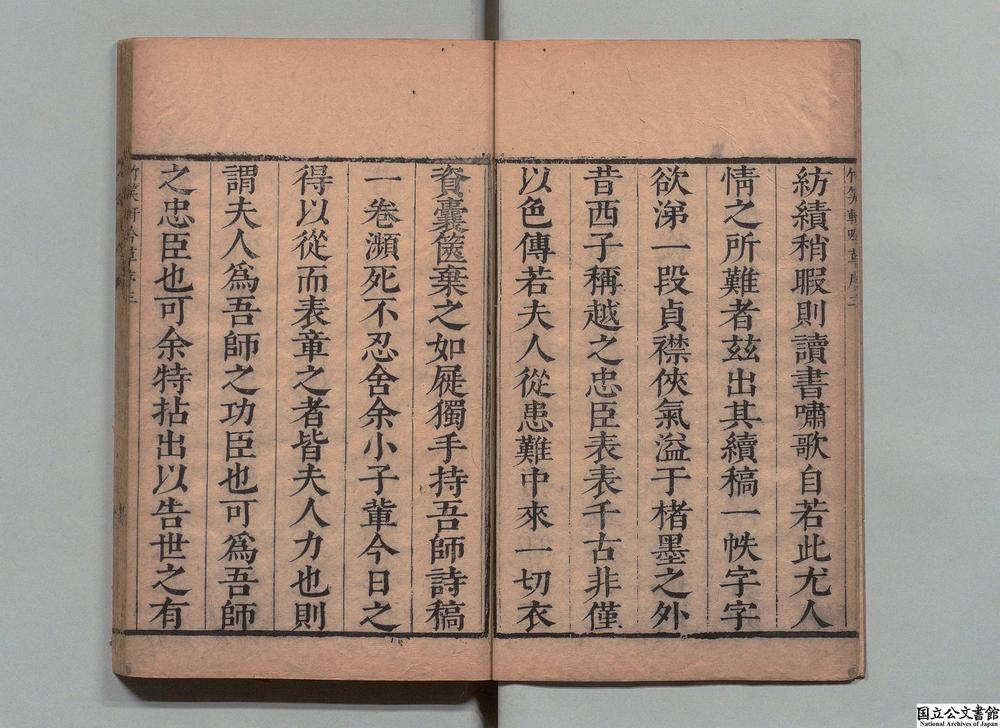 紡績稍暇則讀書嘯歌自若此尤人
情之所難者玆出其續稿一帙字字
欲涕一段貞襟俠氣溢于楮墨之外
昔西子稱越之忠臣表表千古非僅
以色傳若夫人從患難中來一切衣
資囊篋棄之如屣獨手持吾師詩稿
一卷瀕死不忍舍余小子輩今日之
得以從而表章之者皆夫人力也則
謂夫人爲吾師之功臣也可爲吾師
之忠臣也可余特拈出以告世之有
竹笑軒吟草序三
国立公文書館
National Archives of Japan